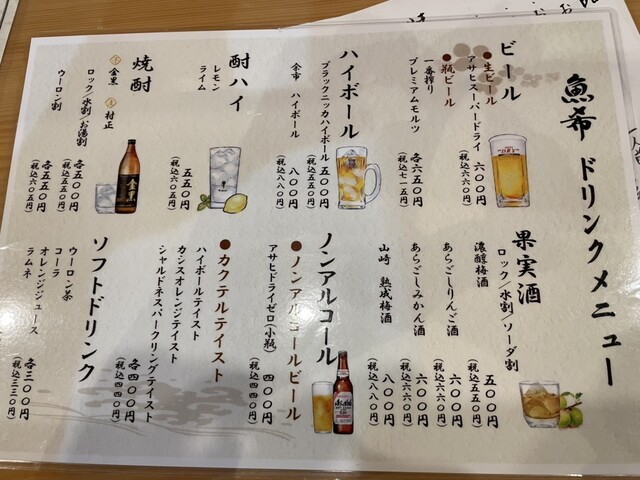 魚希 ドリンクメニュー
ビール
●生ビール
アサヒスーパードライ 六〇〇円
(税込六六〇円)
●瓶ビール
一番搾り
プレミアムモルツ
各六五〇円
(税込七一五円)
ハイボール
ブラックニッカハイボール 五〇〇円
(税込五五〇円)
余市 ハイボール 八〇〇円
(税込八八〇円)
酎ハイ
レモン
ライム
五五〇円
(税込六〇五円)
焼酎
金黒 村正
ロック/水割/お湯割
各五〇〇円
(税込五五〇円)
ウーロン割
各五五〇円
(税込六〇五円)
果実酒
ロック/水割/ソーダ割
濃醇梅酒 五〇〇円
(税込五五〇円)
あらごしりんご酒 六〇〇円
(税込六六〇円)
あらごしみかん酒 六〇〇円
(税込六六〇円)
山崎 熟成梅酒 八〇〇円
(税込八八〇円)
ノンアルコール
●ノンアルコールビール
アサヒドライゼロ(小瓶) 四〇〇円
(税込四四〇円)
●カクテルテイスト
ハイボールテイスト
カシスオレンジテイスト
シャルドネスパークリングテイスト
各四〇〇円
(税込四四〇円)
ソフトドリンク
ウーロン茶
コーラ
オレンジジュース
ラムネ
各三〇〇円
(税込三三〇円)